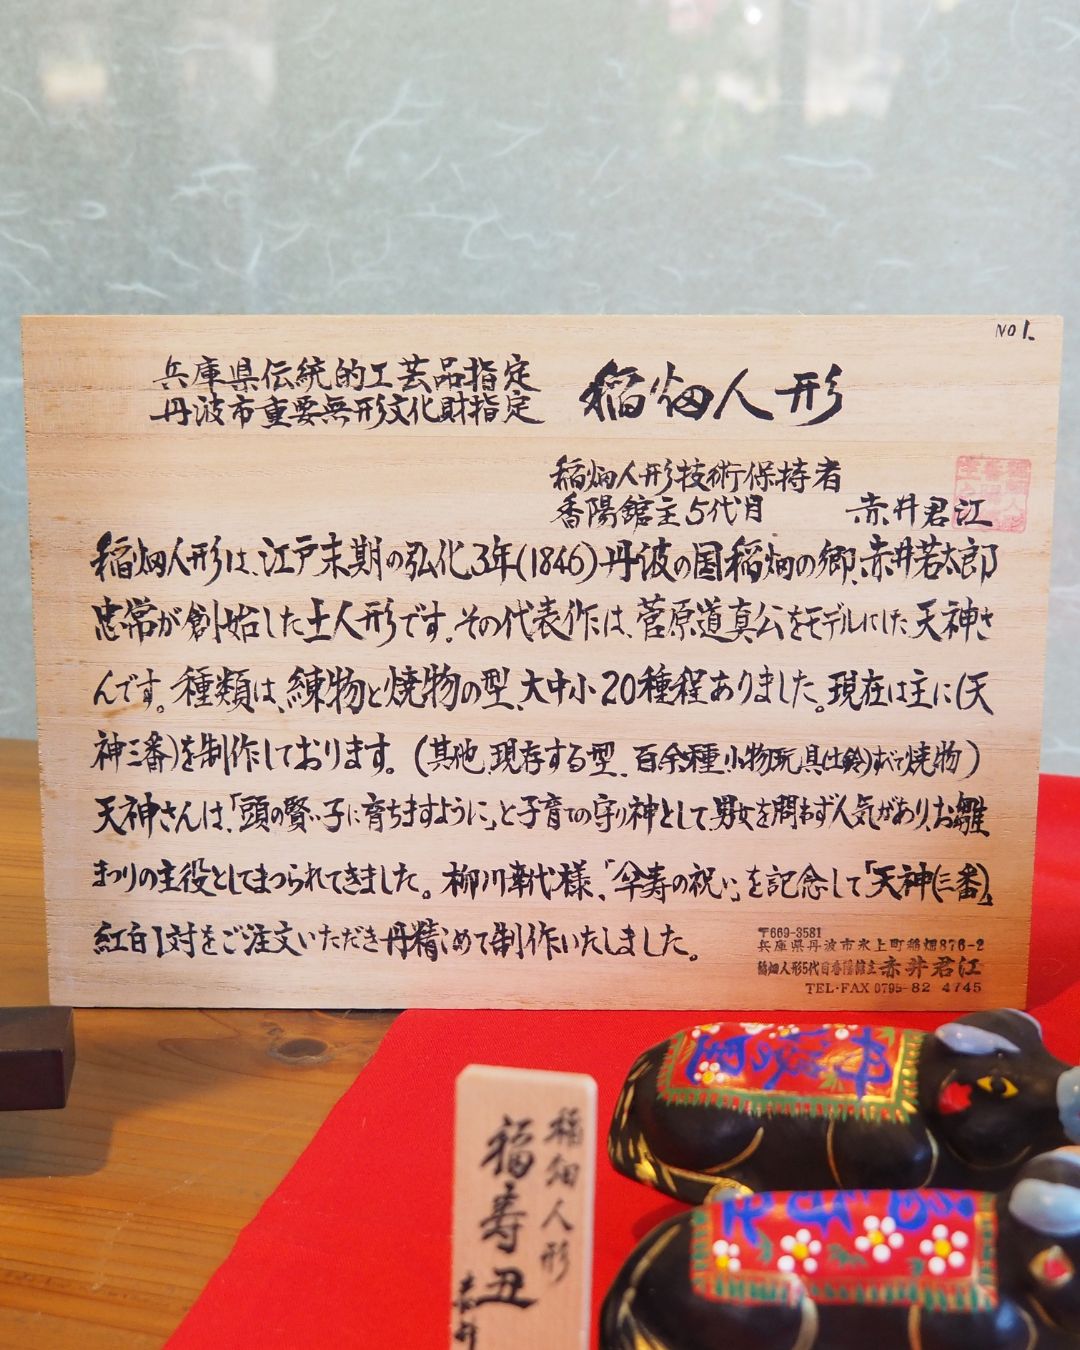 NO 1.
兵庫県伝統的工芸品指定
丹波市重要無形文化財指定
稲畑人形
稲畑人形技術保持者
香陽舘主5代目 赤井君江
稲畑人形は、江戸末期の弘化3年(1846)丹波の国稲畑の郷、赤井若太郎
忠常が創始した土人形です。その代表作は、菅原道真公をモデルにした天神さ
んです。種類は、練物と焼物の型、大中小20種程ありました。現在は主に(天
神三番)を制作しております。(其他、現存する型、百余種、小物玩具(土鈴)すべて焼物)
天神さんは、「頭の賢い子に育ちますように」と子育ての守り神として、男女を問わず人気があり、お雛
まつりの主役としてまつられてきました。柳川幸代様、「傘寿の祝い」を記念して「天神(三番)」
紅白1対をご注文いただき丹精こめて制作いたしました。
〒669-3581
兵庫県丹波市氷上町稲畑876-2
稲畑人形5代目香陽舘主 赤井君江
TEL・FAX 0795-82 4745
稲畑人形
福寿丑